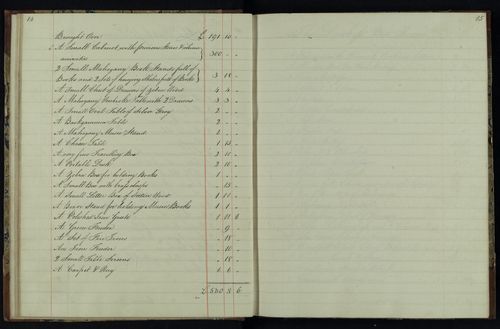 14
15
Brought Over £ 191 10 -
A Small Cabinet with Precious Stones & other curiosities 300 - -
2 Small Mahogany Book Stands full of
Books and 2 sets of hanging Shelves full of Books 3 10 -
A Small Chest of Drawers of Zebra Wood 4 4 -
A Mahogany Table with 2 Drawers 3 3 -
A Small Oval Table of 2 - -
A Backgammon Table 2 - -
A Mahogany Music Stand 2 - -
A Chess Table 1 15 -
A very fine Travelling Box 2 10 -
A Portable Desk 2 10 -
A Zebra Box for holding Books 1 - -
A Small Box with brass clasps - 15 -
A Small Letter Box of Satin Wood 1 11 -
A Brass Stand for holding Music Books 1 1 -
A Polished Iron Grate 1 11 6
A Green Fender - 9 -
A Set of Fire Irons - 18 -
An Iron Fender - 10 -
2 Small Table Screens - 18 -
A Carpet & Rug 6 6 -
£ 530 8 6